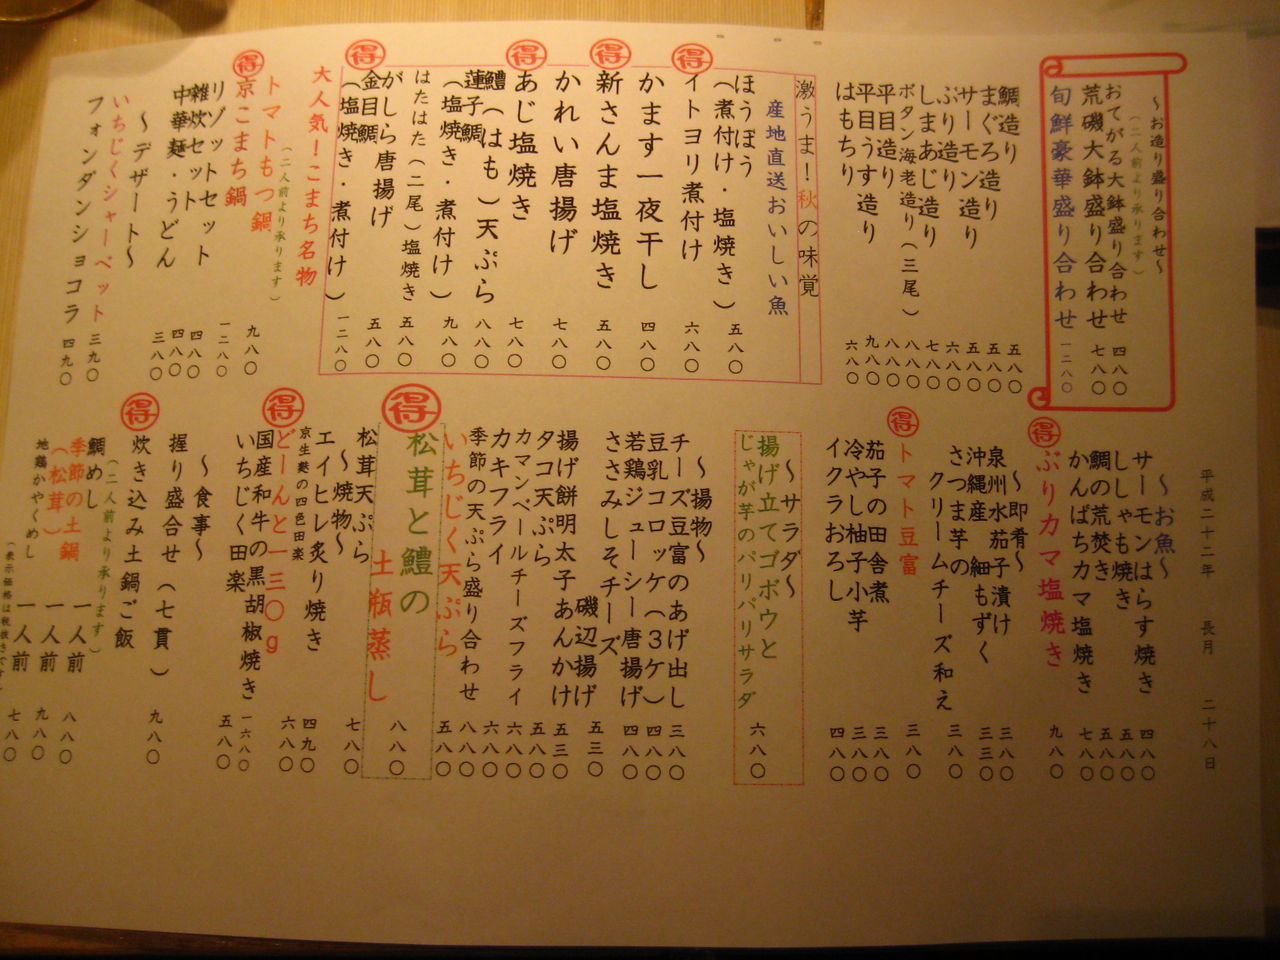 平成二十二年 長月 二十八日
～お造り盛り合わせ～
(二人前より承ります)
おてがる大鉢盛り合わせ 四八〇
荒磯大鉢盛り合わせ 七八〇
旬鮮豪華盛り合わせ 一二八〇
鯛造り 五八〇
まぐろ造り 五八〇
サーモン造り 五八〇
ぶり造り 六八〇
しまあじ造り 七八〇
ボタン海老造り(三尾) 八八〇
平目造り 八八〇
平目うす造り 九八〇
はもちり 六八〇
激うま!秋の味覚
産地直送おいしい魚
ほうぼう
(煮付け・塩焼き) 五八〇
得
イトヨリ煮付け 六八〇
かます一夜干し 四八〇
得
新さんま塩焼き 五八〇
かれい唐揚げ 七八〇
得
あじ塩焼き 七八〇
鱧(はも)天ぷら 八八〇
蓮子鯛
(塩焼き・煮付け) 九八〇
はたはた(二尾)塩焼き 五八〇
がしら唐揚げ 五八〇
得
金目鯛
(塩焼き・煮付け) 一二八〇
大人気!こまち名物
(二人前より承ります)
トマトもつ鍋 九八〇
得
京こまち鍋 一二八〇
リゾットセット 四八〇
雑炊セット 四八〇
中華麺・うどん 三八〇
～デザート～
いちじくシャーベット 三九〇
フォンダンショコラ 四九〇
～お魚～
サーモンはらす焼き 四八〇
ししゃも焼き 五八〇
鯛の荒焚き 五八〇
かんぱちカマ塩焼き 七八〇
得
ぶりカマ塩焼き 九八〇
～即肴～
泉州水茄子漬け 三八〇
沖縄産 細もずく 三三〇
さつま芋の
クリームチーズ和え 三八〇
得
トマト豆富 三八〇
茄子の田舎煮 三八〇
冷やし柚子小芋 三八〇
イクラおろし 四八〇
～サラダ～
揚げ立てゴボウと
じゃが芋のパリパリサラダ 六八〇
～揚物～
チーズ豆富のあげ出し 三八〇
豆乳コロッケ(3ケ) 四八〇
若鶏ジューシー唐揚げ 四八〇
ささみしそチーズ
磯辺揚げ 五三〇
揚げ餅明太子あんかけ 五三〇
タコ天ぷら 五八〇
カマンベールチーズフライ 六八〇
カキフライ 六八〇
季節の天ぷら盛り合わせ 八八〇
いちじく天ぷら 五八〇
得
松茸と鱧の
土瓶蒸し 八八〇
松茸天ぷら 七八〇
～焼物～
エイヒレ炙り焼き 四九〇
京生麩の四色田楽 六八〇
得
どーんと一三〇g
国産和牛の黒胡椒焼き 一六八〇
いちじく田楽 五八〇
～食事～
握り盛合せ(七貫) 九八〇
得
炊き込み土鍋ご飯
(二人前より承ります)
鯛めし 一人前 八八〇
季節の土鍋
(松茸) 一人前 九八〇
地鶏かやくめし 一人前 七八〇
(表示価格は税抜きです)